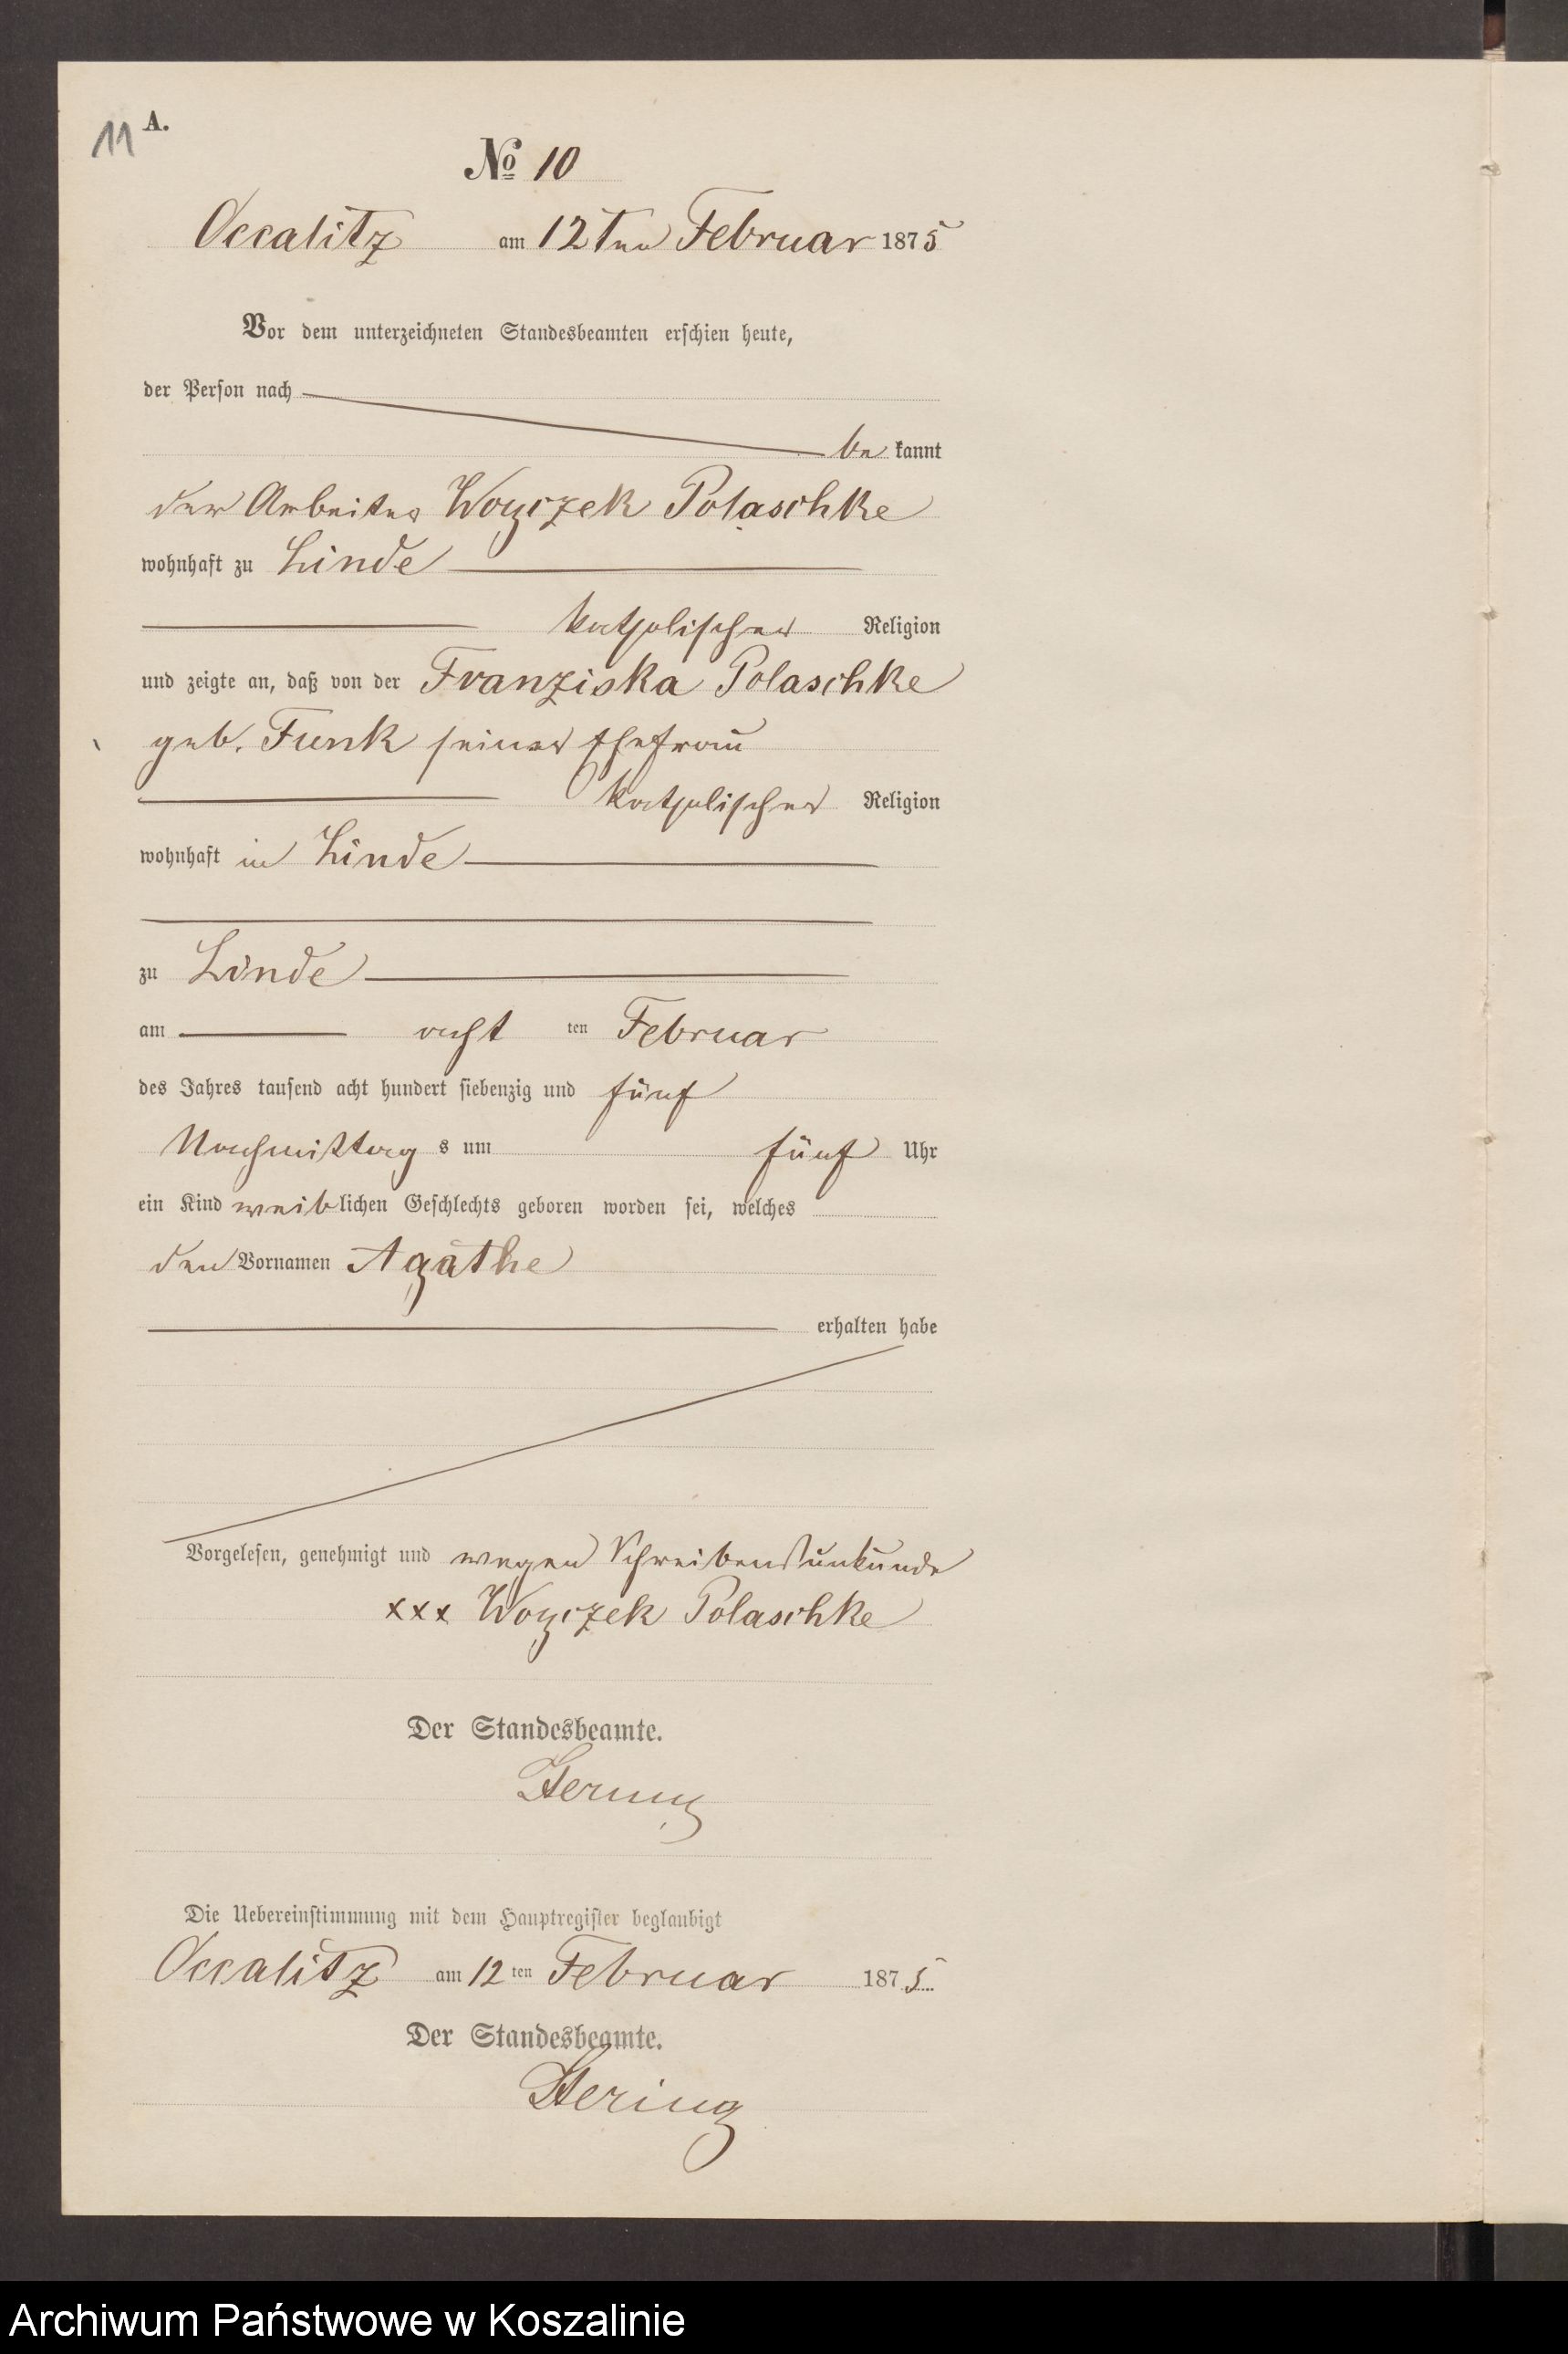 11 A.
№ 10
Occalitz am 12ten Februar 1875
Vor dem unterzeichneten Standesbeamten erschien heute,
der Person nach
be kannt
der Arbeiter Woyczek Polaschke
wohnhaft zu Linde
katholischer Religion
und zeigte an, daß von der Franziska Polaschke
geb. Funk seiner Ehefrau
katholischer Religion
wohnhaft in Linde
zu Linde
am acht ten Februar
des Jahres tausend acht hundert siebenzig und fünf
Nachmittag s um fünf Uhr
ein Kind weiblichen Geschlechts geboren worden sei, welches
den Vornamen Agathe
erhalten habe
Vorgelesen, genehmigt und wegen Schreibensunkunde
xxx Woyczek Polaschke
Der Standesbeamte.
Hering
Die Uebereinstimmung mit dem Hauptregister beglaubigt
Occalitz am 12 ten Februar 1875
Der Standesbeamte.
Hering
Archiwum Państwowe w Koszalinie